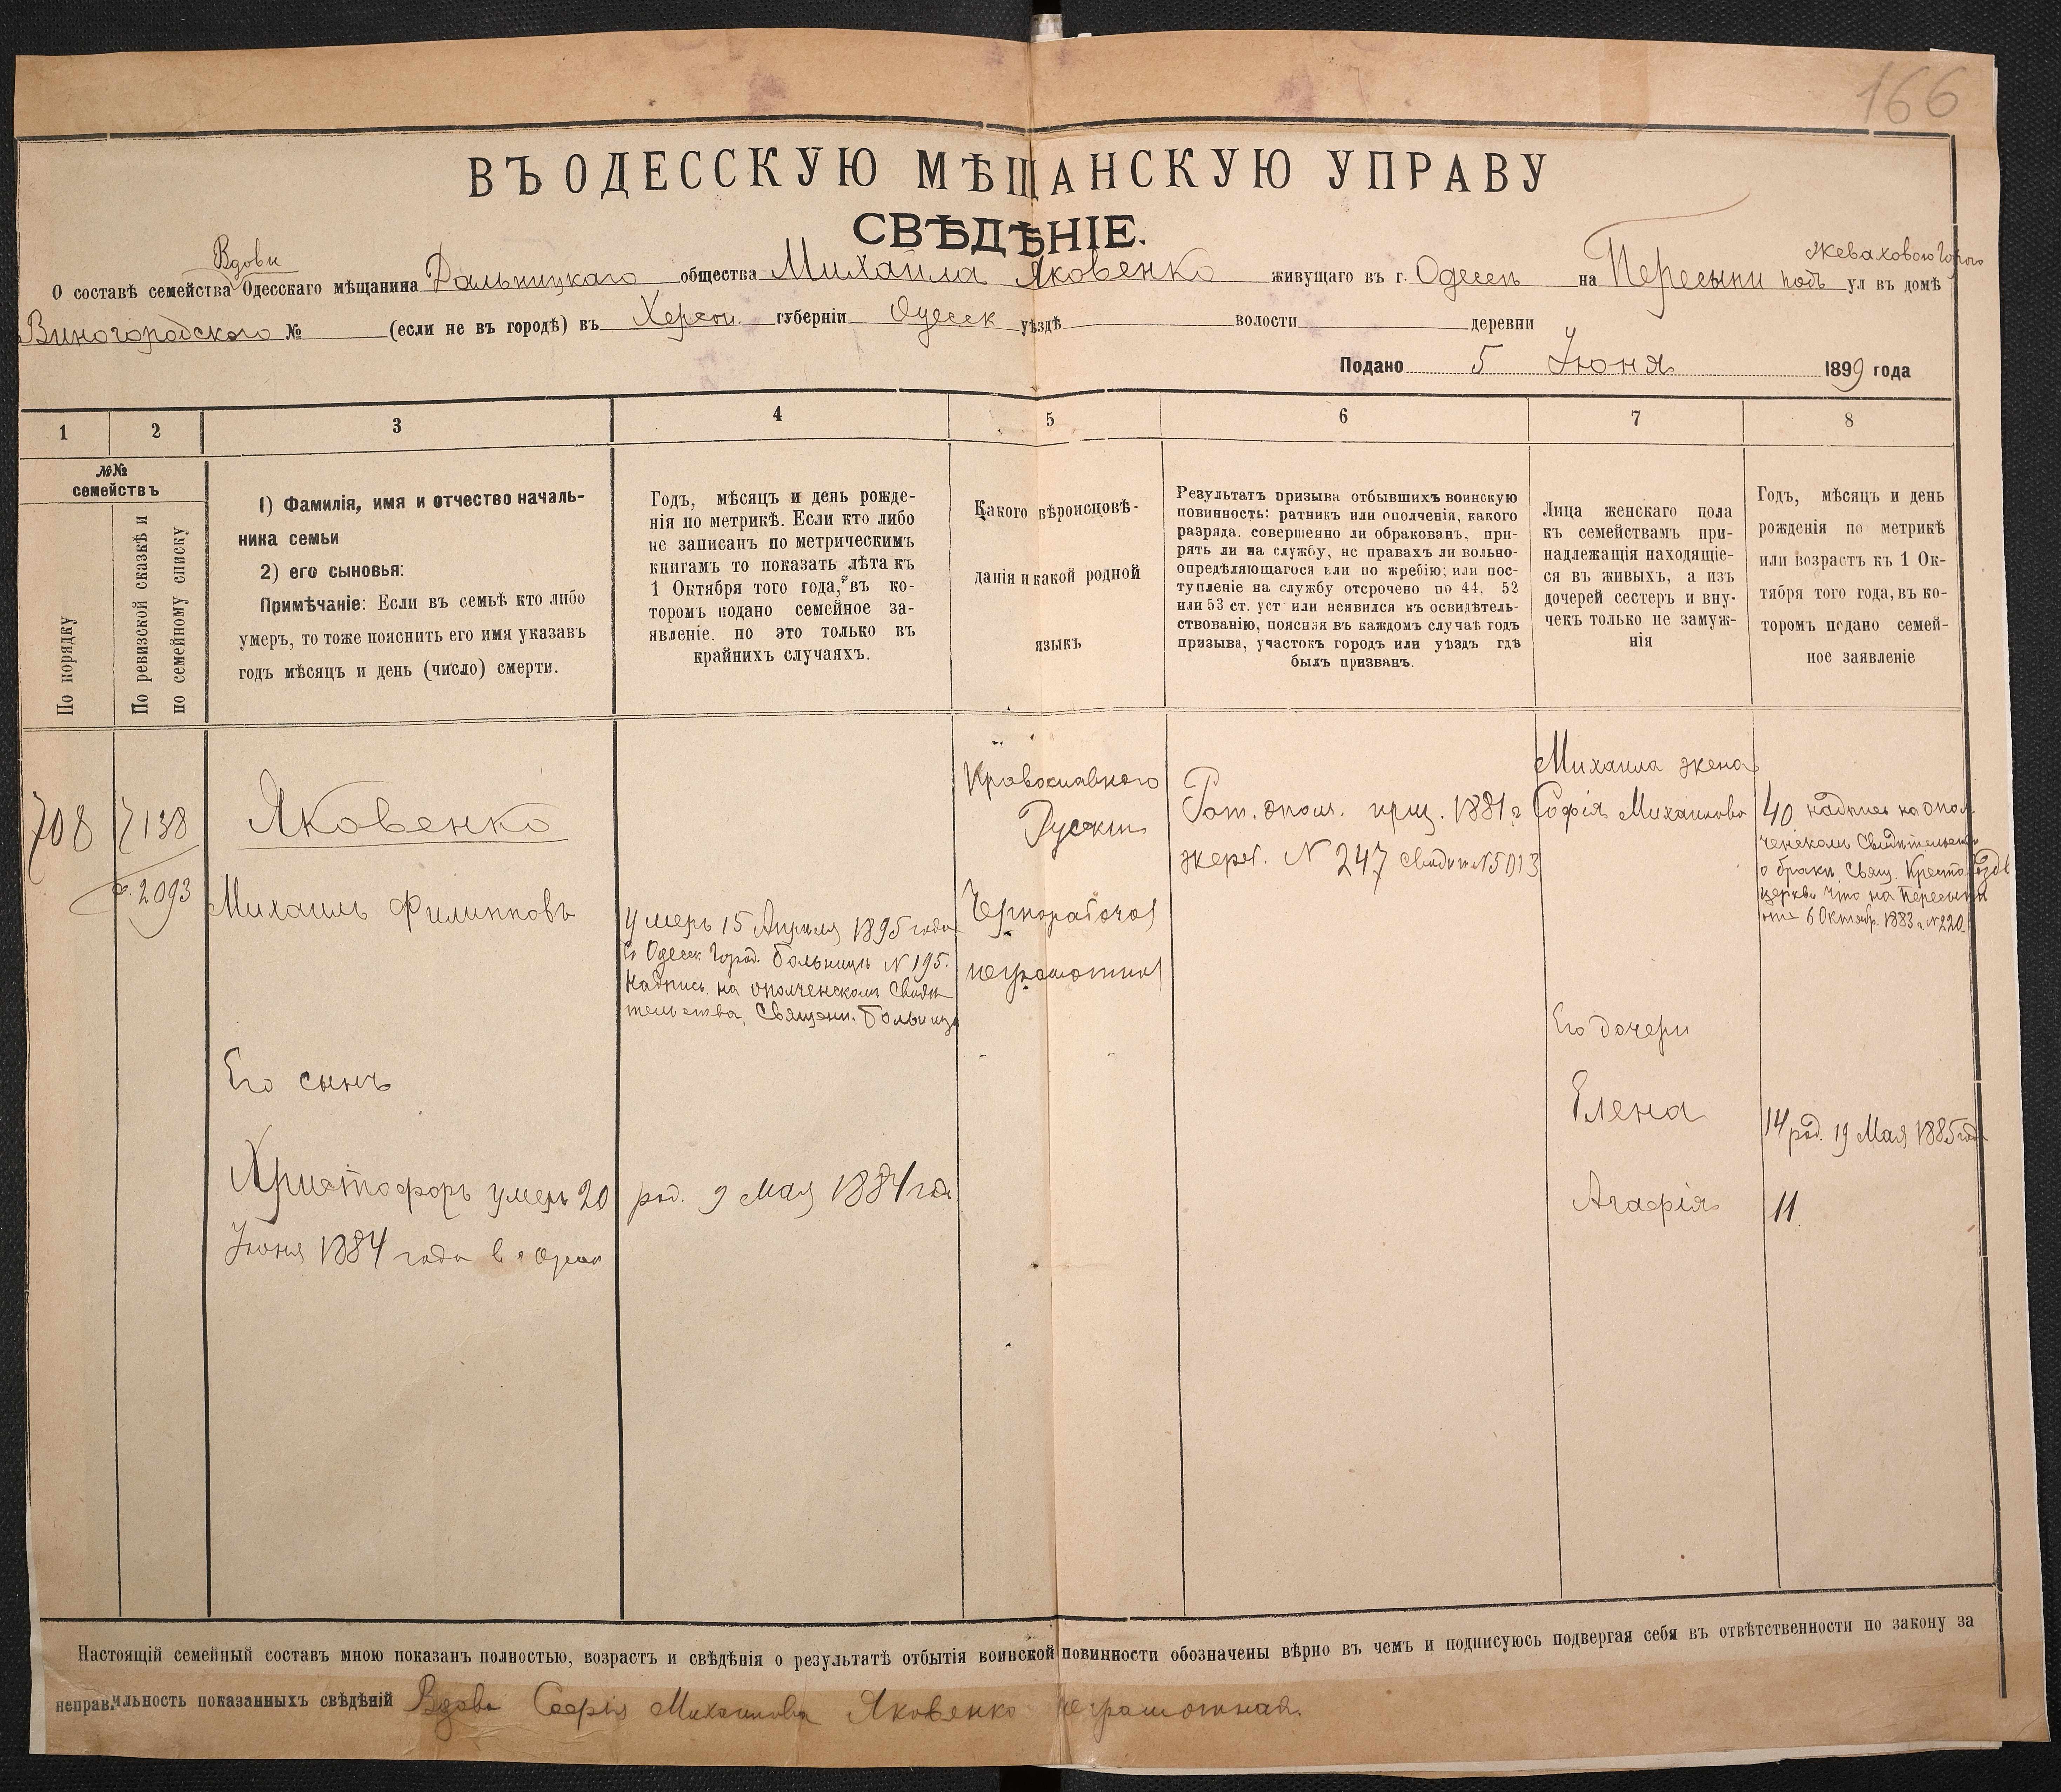 166
ВЪ ОДЕССКУЮ МѢЩАНСКУЮ УПРАВУ
СВѢДѢНІЕ.
Вдови
Жеваховою Горою
О составѣ семейства Одесскаго мѣщанина Дальницкаго общества Михаила Яковенко живущаго въ г. Одессѣ на Пересыпи подъ ул въ домѣ
Виногородского № (если не въ городѣ) въ Херсон. губерніи Одесск уѣздѣ волости деревни
Подано 5 Іюня 1899 года
1 2 3 4 5 6 7 8
№№ семействъ
По порядку
По ревизской сказкѣ и
по семейному списку
1) Фамилія, имя и отчество началь-
ника семьи
2) его сыновья:
Примѣчаніе: Если въ семьѣ кто либо
умеръ, то тоже пояснить его имя указавъ
годъ мѣсяцъ и день (число) смерти.
Годъ, мѣсяцъ и день рожде-
нія по метрикѣ. Если кто либо
не записанъ по метрическимъ
книгамъ то показать лѣта къ
1 Октября того года, въ ко-
торомъ подано семейное за-
явленіе. но это только въ
крайнихъ случаяхъ.
Какого вѣроисповѣ-
данія и какой родной
языкъ
Результатъ призыва отбывшихъ воинскую
повинность: ратникъ или ополченія, какого
разряда. совершенно ли обракованъ. при-
рять ли на службу, нс правахъ ли вольно-
опредѣляющагося или по жребію; или пос-
тупленіе на службу отсрочено по 44. 52
или 53 ст. уст или неявился къ освидѣтель-
ствованію, поясняя въ каждомъ случаѣ годъ
призыва, участокъ городъ или уѣздъ гдѣ
былъ призванъ.
Лица женскаго пола
къ семействамъ при-
надлежащія находящіе-
ся въ живыхъ, а изъ
дочерей сестеръ и вну-
чекъ только не замуж-
нія
Годъ, мѣсяцъ и день
рожденія по метрикѣ
или возрастъ къ 1 Ок-
тября того года, въ ко-
торомъ подано семей-
ное заявленіе
708
7138
2093
Яковенко
Михаилъ Филипповъ
Его сынъ
Христофоръ умеръ 20
Іюня 1884 года в г Одесс
умеръ 15 Апреля 1895 года
в Одесск Город. больницѣ N 195.
Надпись на ополченскомъ Свидѣ
тельства, Священ. больниц
род. 9 Мая 1884 год
Православного
Русский
Чернорабочая
неграмотная
Рат. опол. приз. 1881 г
жереб. N 247 Свидѣт N 5013
Михаила жена
Софія Михаилова
Его дочери
Елена
Агафія
40 надпись на опол
ченском Свидѣтельстве
о браки Свящ. Кресто
церкви что на Пересыпи
отъ 6 Октябр. 1883 г. N 220.
14 род. 19 Мая 1885 года
11
Настоящій семейный составъ мною показанъ полностью, возрастъ и свѣдѣнія о результатѣ отбытія воинской повинности обозначены вѣрно въ чемъ и подписуюсь подвергая себя въ отвѣтственности по закону за
неправильность показанныхъ свѣдѣній Вдова Софія Михаилова Яковенко неграмотная.